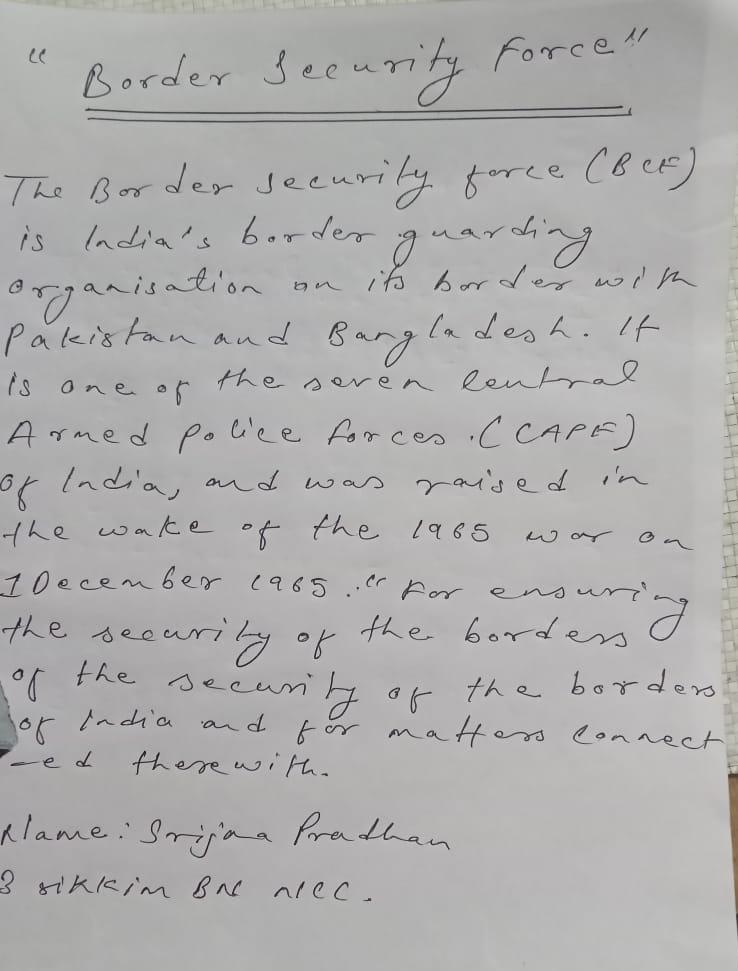 " Border Security Force"
The Border security force (BCF)
is India's border guarding
organisation on its border with
Pakistan and Bangladesh. It
is one of the seven Central
Armed Police forces. (CAPF)
of India, and was raised in
the wake of the 1965 war on
1 December 1965.." For ensuring
the security of the borders
of the security of the borders
of India and for matters connect
-ed therewith.
Name: Srijana Pradhan
3 sikkim BN NCC.